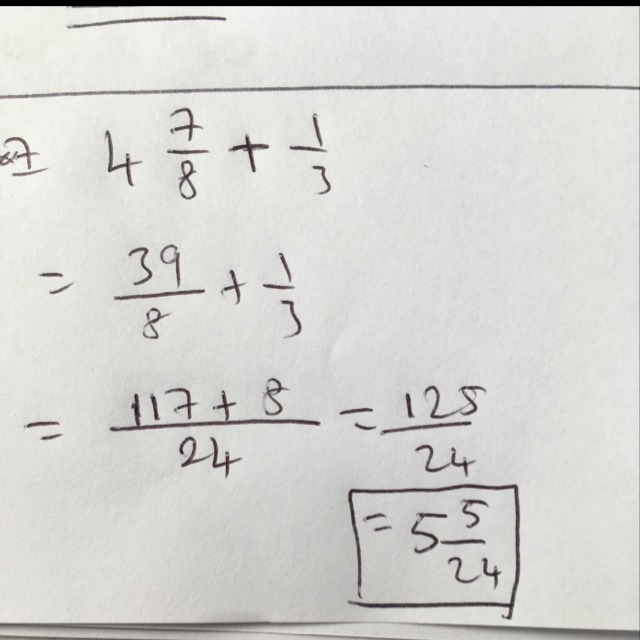 4 7/8 + 1/3
= 39/8 + 1/3
= (117 + 8)/24 = 125/24
= 5 5/24